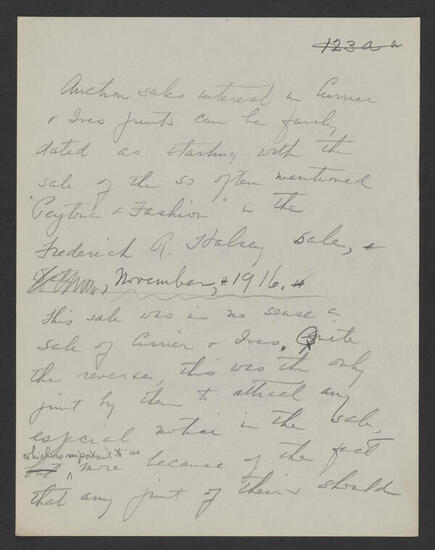 123a a
Auction sales interest in Currier
& Ives prints can be fairly
dated as starting with the
sale of the so often mentioned
"Peytona & Fashion" in the
Frederick R. Halsey sale,
November, 1916.
This sale was in no sense a
sale of Currier & Ives. Quite
the reverse, this was the only
print by them to attract any
especial notice in the sale,
which is important to us
but more because of the fact
that any print of theirs should